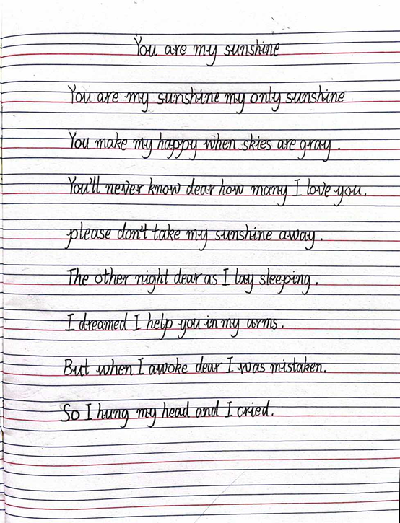 You are my sunshine
You are my sunshine my only sunshine
You make my happy when skies are gray.
You'll never know dear how many I love you.
please don't take my sunshine away.
The other night dear as I lay sleeping.
I dreamed I help you in my arms.
But when I awoke dear I was mistaken.
So I hung my head and I cried.